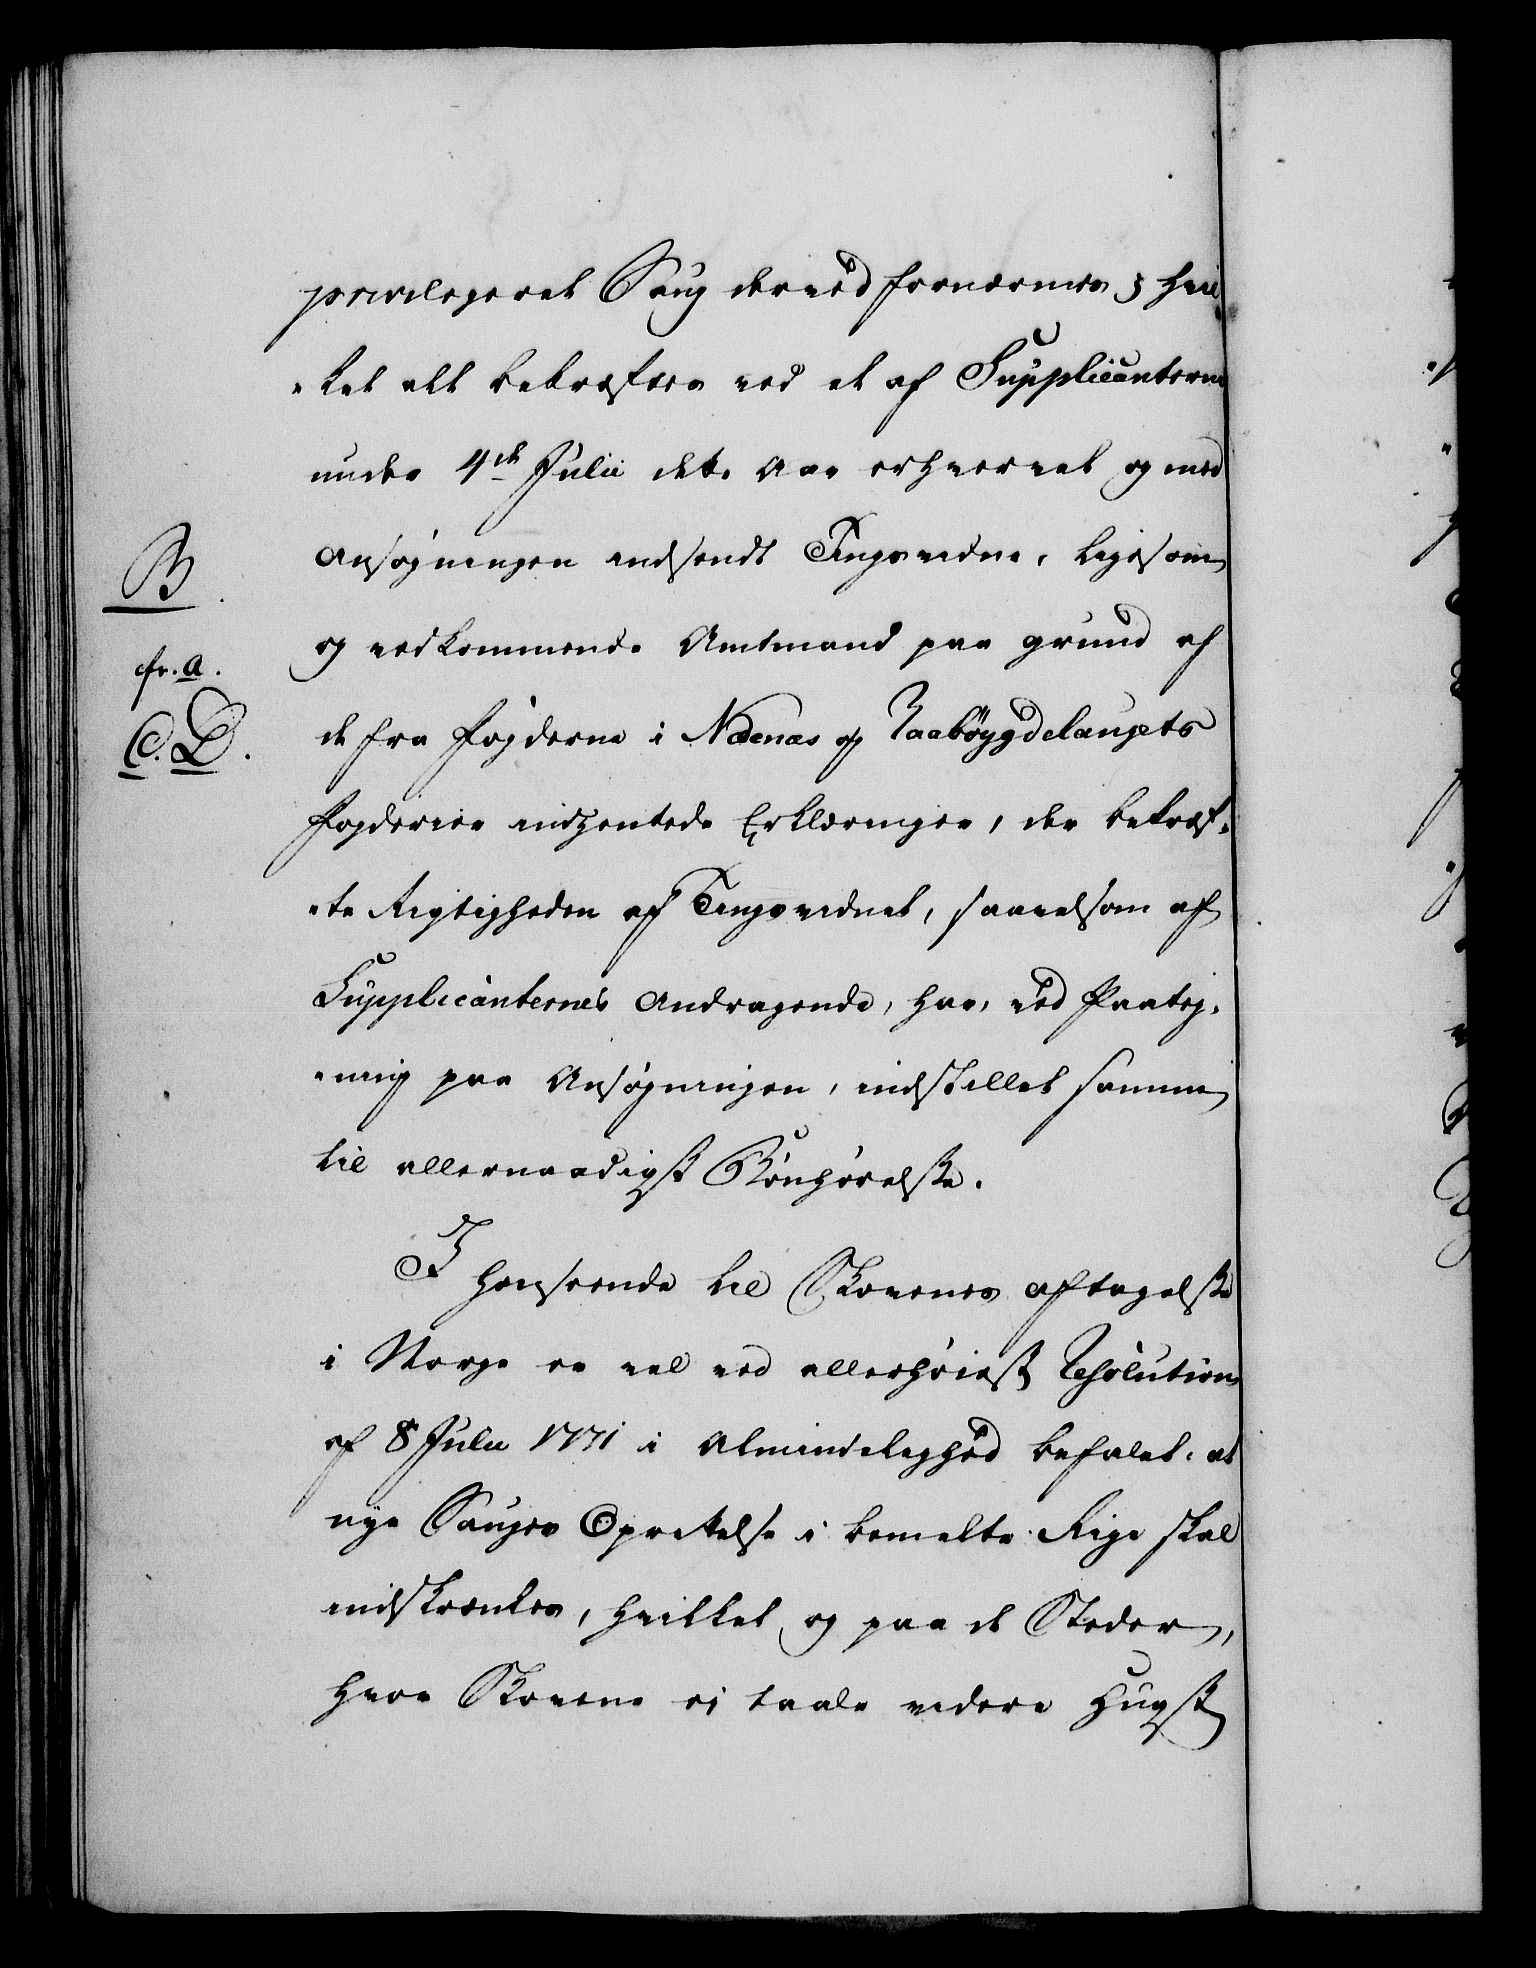 privilegeret Saug derved fornærmes; hvil-
-ket alt bekræftes ved et af Supplicanterne
under 4de Julii dette Aar erhvervet og med
Ansøgningen indsendt Tingsvidne, ligesom
B.
og vedkommende Amtmand paa grund af
fr. a.
de fra fogderne i Nedenæs og Raabøygdelaugets
C. D.
Fogderier indhentede Erklæringer, der bekræf-
-te Rigtigheden af Tingsvidnet, saavelsom af
Supplicanternes Andragende, har, ved Paateg-
-ning paa Ansøgningen, indstillet samme
til allernaadigst Bønhørelse.
I Henseende til Skovenes aftagelse
i Norge er vel ved allerhøiest Resolution
af 8 Julii 1771 i Almindelighed befalet, at
nye Sauges Oprettelse i bemelte Rige skal
indskrænkes, hvilket og paa de Steder,
hvor Skovene ej taale videre Hugst